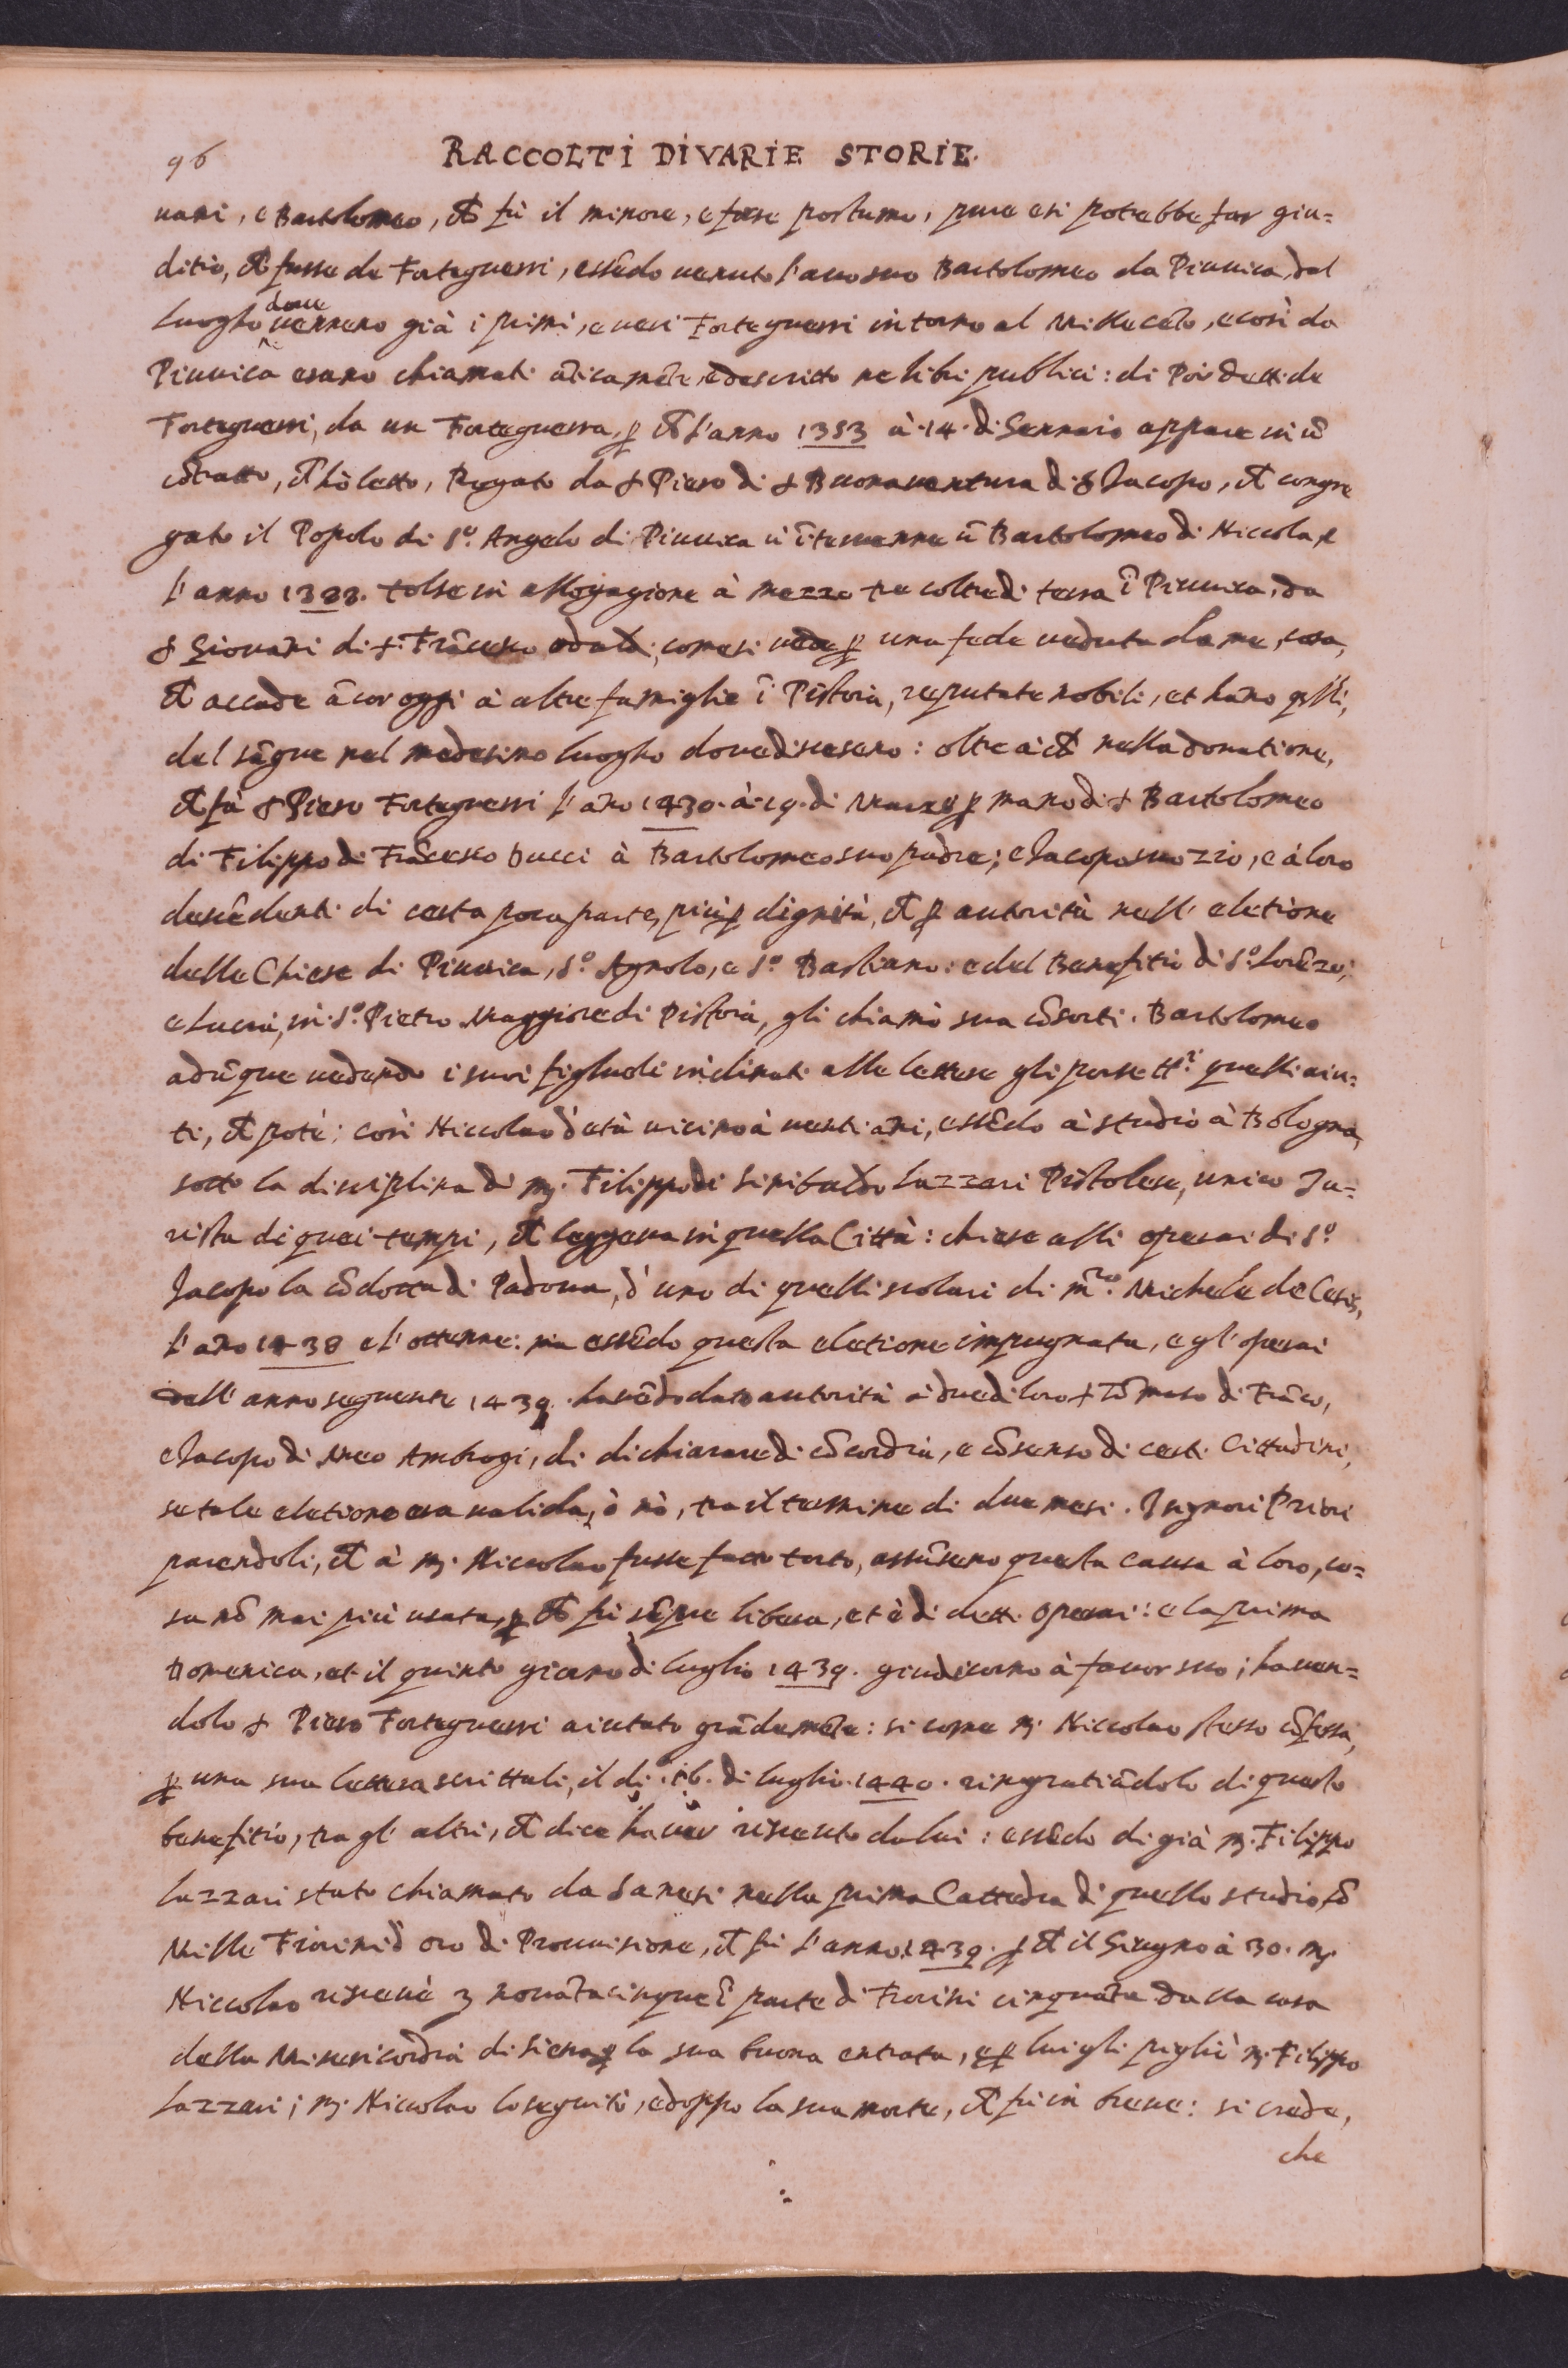 96 RACCOLTI DI VARIE STORIE.
nani, e Bartolomeo, ch̃ fù il minore, e forse postumo, pure esi potrebbe far giu=
ditio, ch̃ fusse de Forteguerri, essẽdo venuto l'avo suo Bartolomeo da Piuuica, dal
luogho doue uennero già i primi, e ueri Forteguerri intorno al Millecẽto, e così da
Piuuica erano chiamati ãticamẽte, e descritto ne libri publici: di Poi detti de
Forteguerri, da un Forteguerra, ꝑ ch̃ l'anno 1353 à 14. di Gennaio appare in ũ
cõtratto, ch̃ hò letto, Rogato da s Piero di s Buonauentura di s Jacopo, ch̃ congre
gato il Popolo di S.º Angelo di Piuuica ui ĩteruenne ũ Bartolomeo di Niccola, e
l'anno 1383. tolse in allogagione à mezzo tre coltre di terra ĩ Piuuica, da
s Giouani di s. Frãcesco odaldi, come si uede ꝑ una fede ueduta da me, cosa,
ch̃ accade ãcor oggi à altre famiglie ĩ Pistoia, reputate nobili, et hãno
del sãgue nel medesimo luogho doue discesero: oltre à ch̃ nella donatione,
ch̃ fà s Piero Forteguerri l'año 1430. à 19. di Marzo ꝑ mano di s Bartolomeo
di Filippo di Frãcesco Ducci à Bartolomeo suo padre; e Jacopo suo zio, e à loro
descẽdenti di certa poca parte, più ꝑ dignità, ch̃ ꝑ autorità nell' eletione
delle Chiese di Piuuica, S.º Agnolo, e S.º Bastiano: e del Benefitio di S.º Lorẽzo;
e Lucia, in S.º Pietro Maggiore di Pistoia, gli chiamò sua cõsorti. Bartolomeo
adũque uedendo i suoi figluoli inclinati alle lettere gli porse tt.i quelli aiu=
ti, ch̃ potè: così Niccolao d'età uicino à uenti ãni, essẽdo à studio à Bologna,
sotto la disciplina di m̃. Filippo di Sinibaldo Lazzari Pistolese, unico Ju=
rista di quei tempi, ch̃ leggeua in quella Città: chiese alli operai di S.º
Jacopo la cõdotta di Padoua, d' uno di quelli scolari di m.ro Michele de Cesis,
l'año 1438 e l'ottenne: ma essẽdo questa eletione impugnata, e gl' operai
dell' anno seguente 1439. hauẽdo dato autorità à due di loro s Tõmaso di Frãco,
e Jacopo di Meo Ambrogi, di dichiarare di cõcordia, e cõsenso di certi Cittadini,
se tale eletione era ualida, ò nò, tra il termine di due mesi. I signori Priori
parendoli, ch̃ à m̃. Niccolao fusse fatto torto, assũsero questa causa à loro, co=
sa nõ mai più usata, ꝑ ch̃ fù sẽpre libera, et è di detti operai: e la prima
Domenica, et il quinto giorno di luglio 1439. giudicorno à fauor suo; hauen=
dolo s Piero Forteguerri aiutato grãdemẽte: si come m̃. Niccolao stesso cõfessa,
ꝑ una sua lettera scrittali, il dì. 16. di luglio. 1440. ringratiãdolo di questo
benefitio, tra gl' altri, ch̃ dice hauer riceuuto da lui: essẽdo di già m̃. Filippo
Lazzari stato chiamato da Sanesi nella prima Cattedra di quello studio, cõ
Mille Fiorini d' oro di Prouisione, ch̃ fù l'anno 1439. ꝑ ch̃ il Giugno à 30. m̃.
Niccolao riceuè ʒ nouãtacinque ĩ parte di Fiorini cinquãta dalla casa
della Misericordia di Siena ꝑ la sua buona entrata, e ꝑ lui gli pigliò m̃. Filippo
Lazzari; m̃. Niccolao lo seguitò, e doppo la sua morte, ch̃ fù in breue: si crede,
che